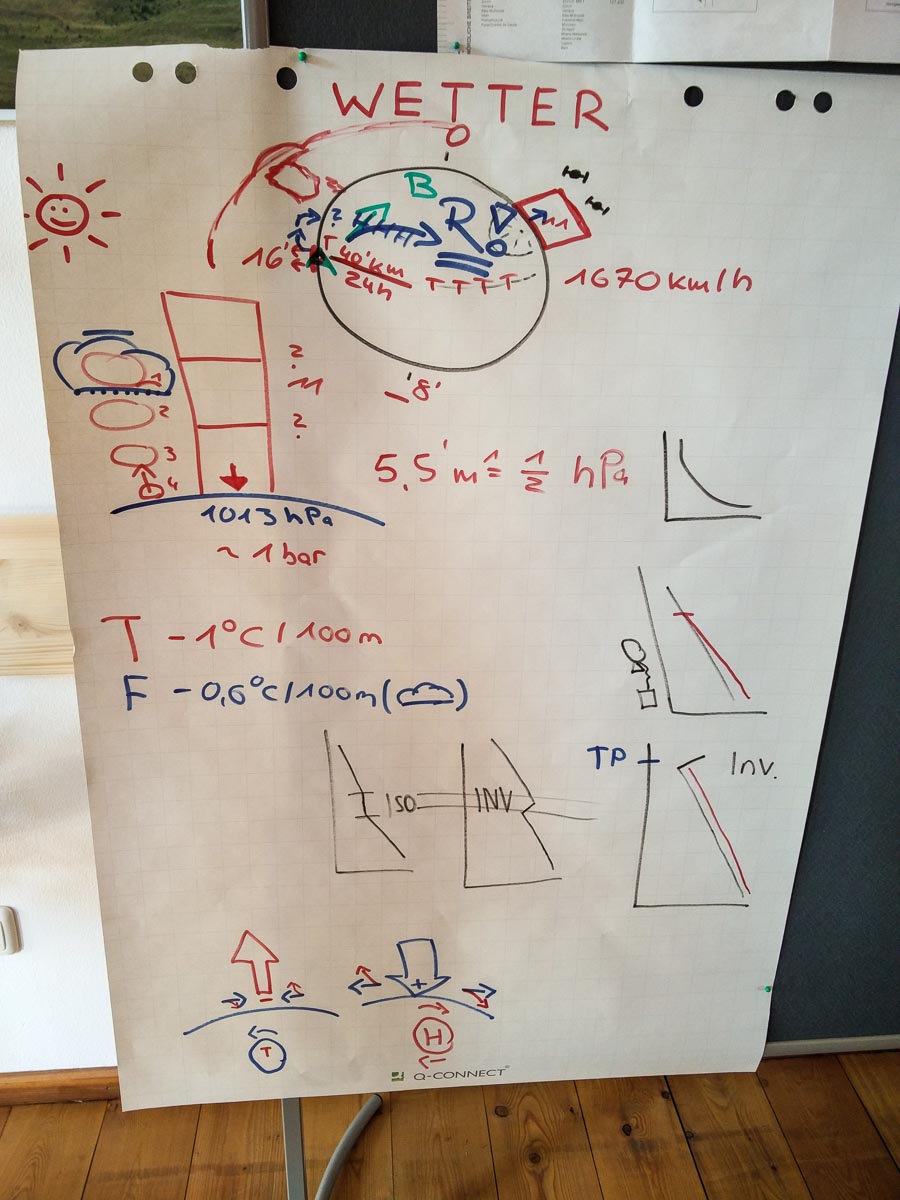 WETTER
B
?
R
11
16'
T
40'km
24h
T T T T
1670 km/h
?
11
?
1
2
3
4
'8'
5,5'm ≙ 1/2 hPa
1013 hPa
~ 1 bar
T -1°C/100m
F -0,6°C/100m ( )
TP
Inv.
ISO
INV
- +
T H
Q-CONNECT